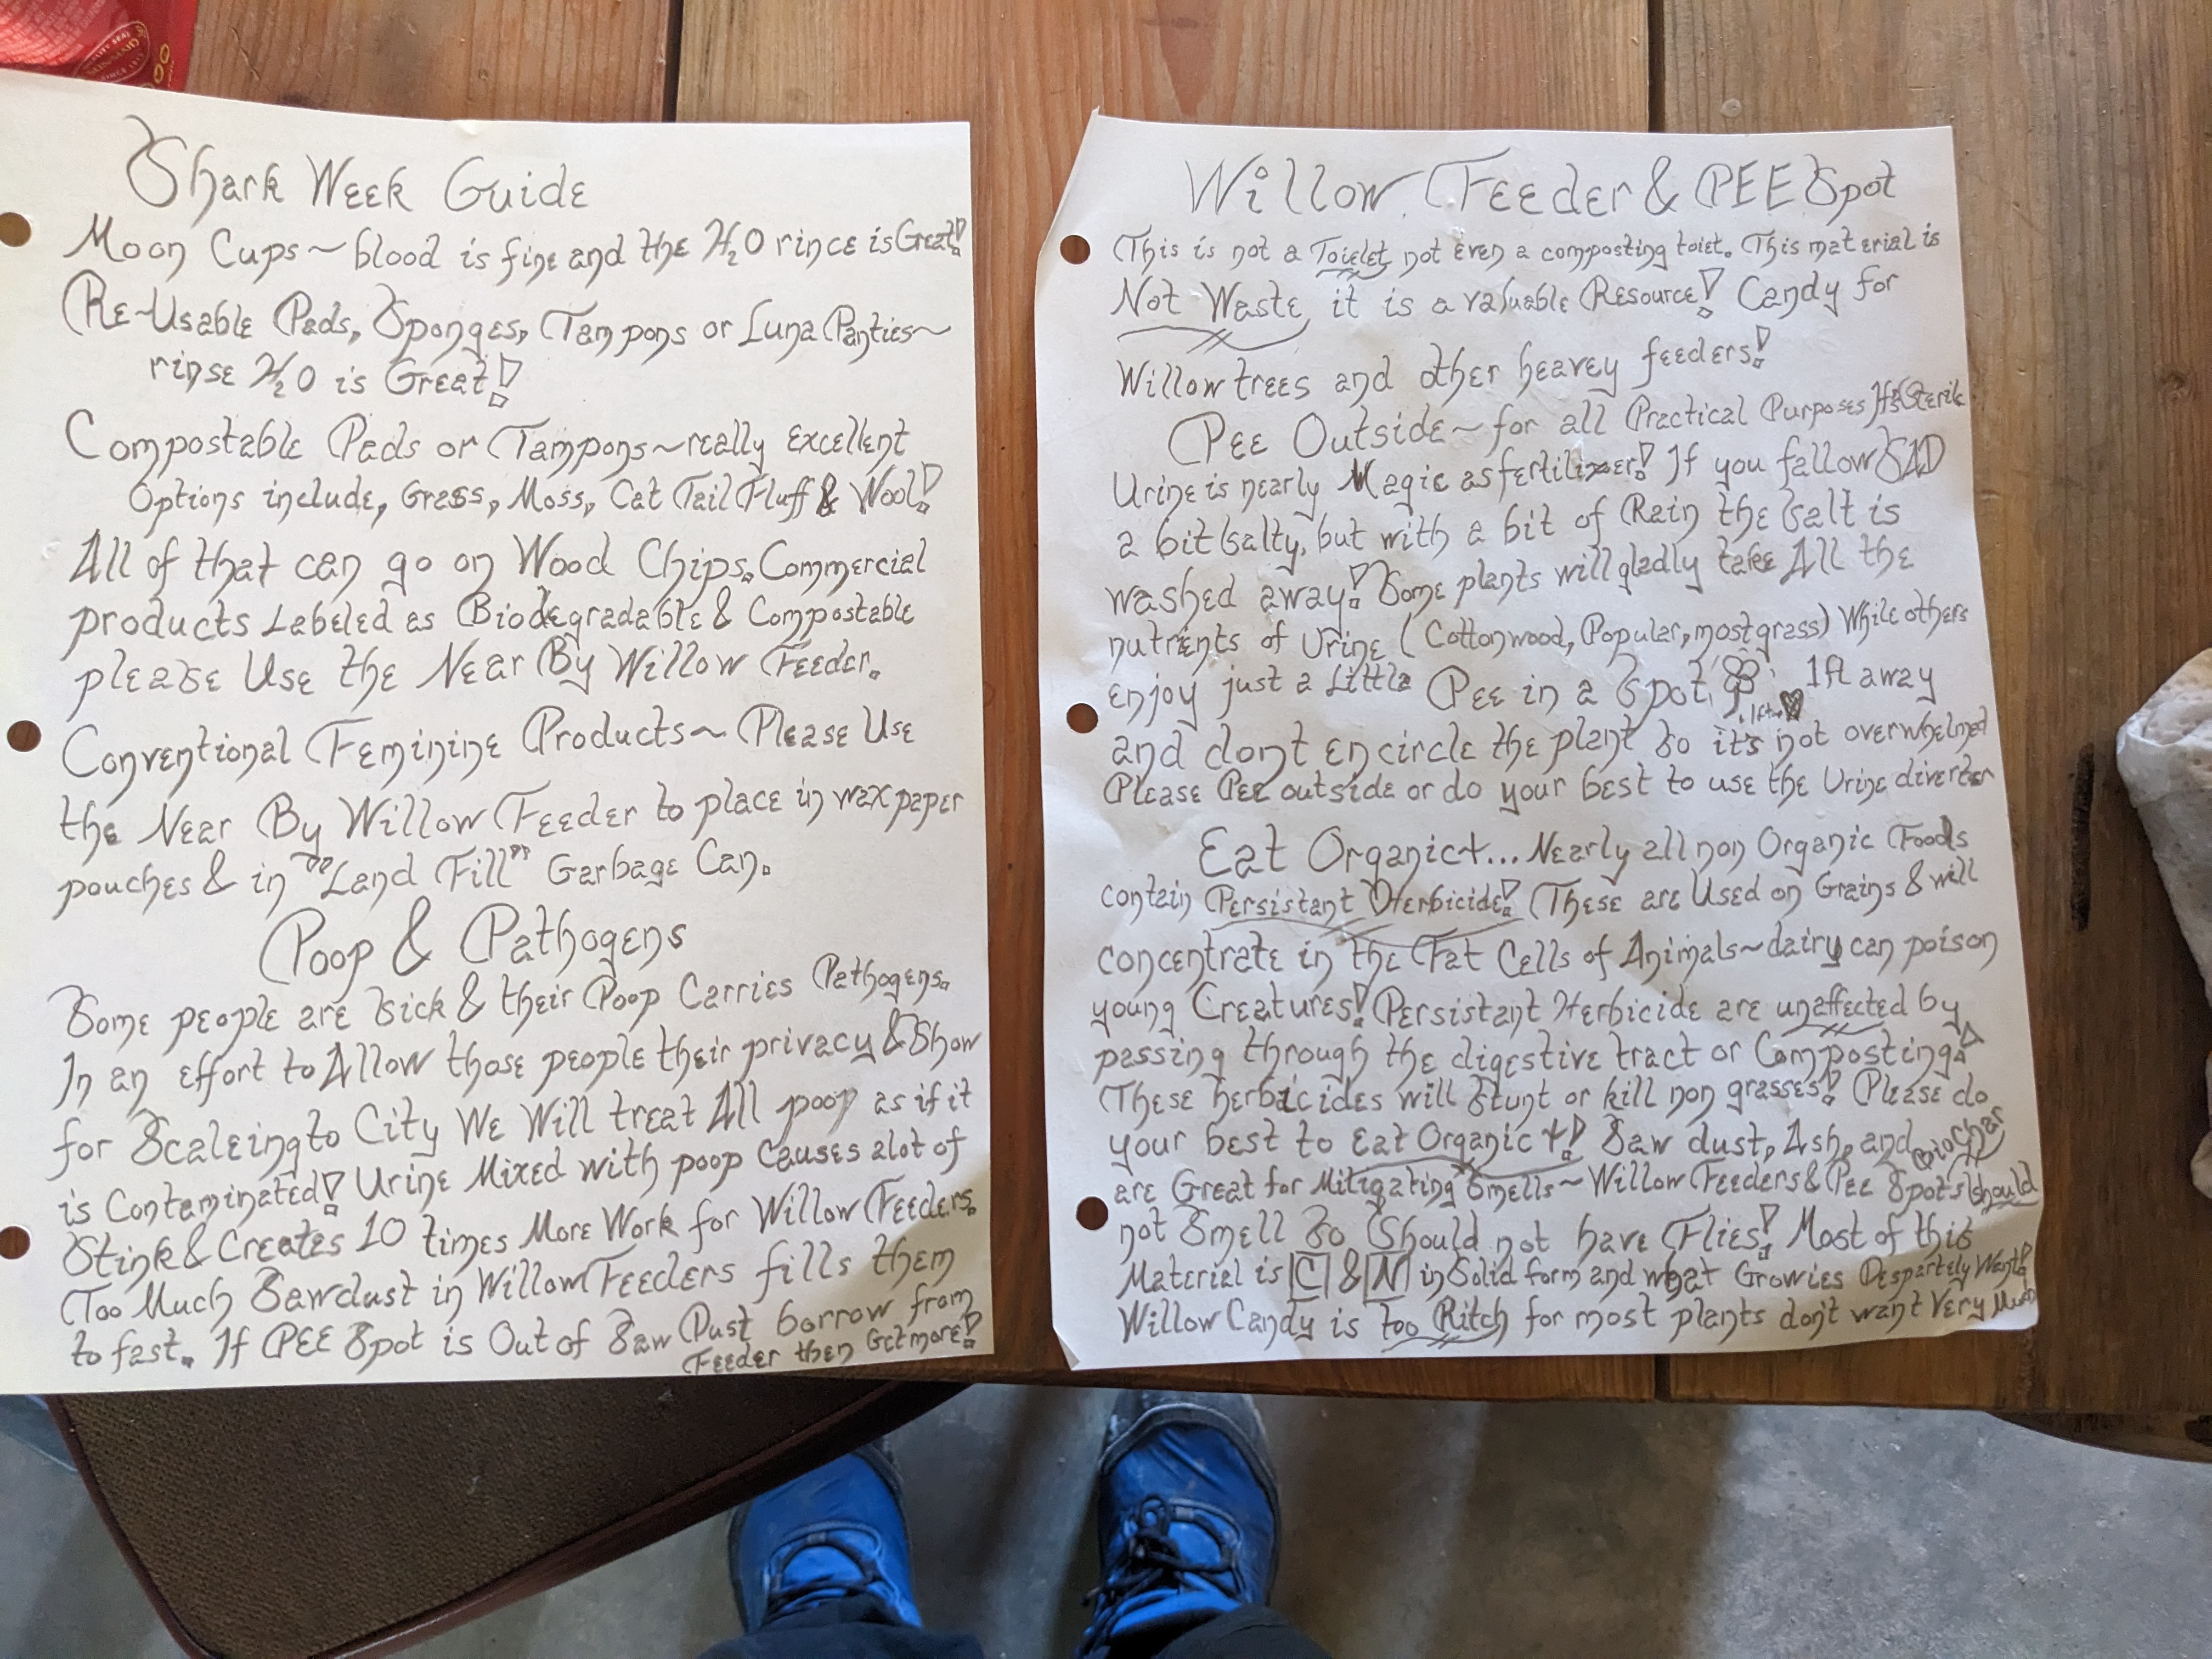 Shark Week Guide
Moon Cups~blood is fine and the H2O rince is Great!
Re-Usable Pads, Sponges, Tampons or Luna Panties~
rinse H2O is Great!
Compostable Pads or Tampons~really excellent
Options include, Grass, Moss, Cat Tail Fluff & Wool!
All of that can go on Wood Chips. Commercial
products Labeled as Biodegradable & Compostable
please Use the Near By Willow Feeder.
Conventional Feminine Products~ Please Use
the Near By Willow Feeder to place in wax paper
pouches & in "Land Fill" Garbage Can.
Poop & Pathogens
Some people are sick & their Poop Carries Pathogens.
In an effort to Allow those people their privacy & Show
for Scaleing to City We Will treat All poop as if it
is Contaminated! Urine Mixed with poop Causes alot of
Stink & Creates 10 times More Work for Willow Feeders.
Too Much Sawdust in Willow Feeders fills them
to fast. If PEE Spot is Out of Saw Dust borrow from
Feeder then Get more!
Willow Feeder & PEE Spot
This is not a Toielet not even a composting toiet. This material is
Not Waste it is a valuable Resource! Candy for
Willow trees and other heavey feeders!
Pee Outside~for all Practical Purposes Its Sterile
Urine is nearly Magic as fertilizer! If you fallow SAD
a bit Salty, but with a bit of Rain the Salt is
washed away! Some plants will gladly take All the
nutrients of Urine (Cottonwood, Popular, most grass) While others
enjoy just a Little Pee in a Spot 1ft away
and dont encircle the plant so it's not overwhelmed
Please Pee outside or do your best to use the Urine diverter
Eat Organic+... Nearly all non Organic Foods
contain Persistant Herbicide! These are Used on Grains & will
concentrate in the Fat Cells of Animals~dairy can poison
young Creatures! Persistant Herbicide are unaffected by
passing through the digestive tract or Composting!
These herbicides will Stunt or kill non grasses! Please do
your best to Eat Organic +! Saw dust, Ash, and BioChar
are Great for Mitigating Smells~Willow Feeders & Pee Spots should
not Smell So Should not have Flies! Most of this
Material is C & N in Solid form and what Growies Despartely Want!
Willow Candy is too Ritch for most plants don't want Very Much